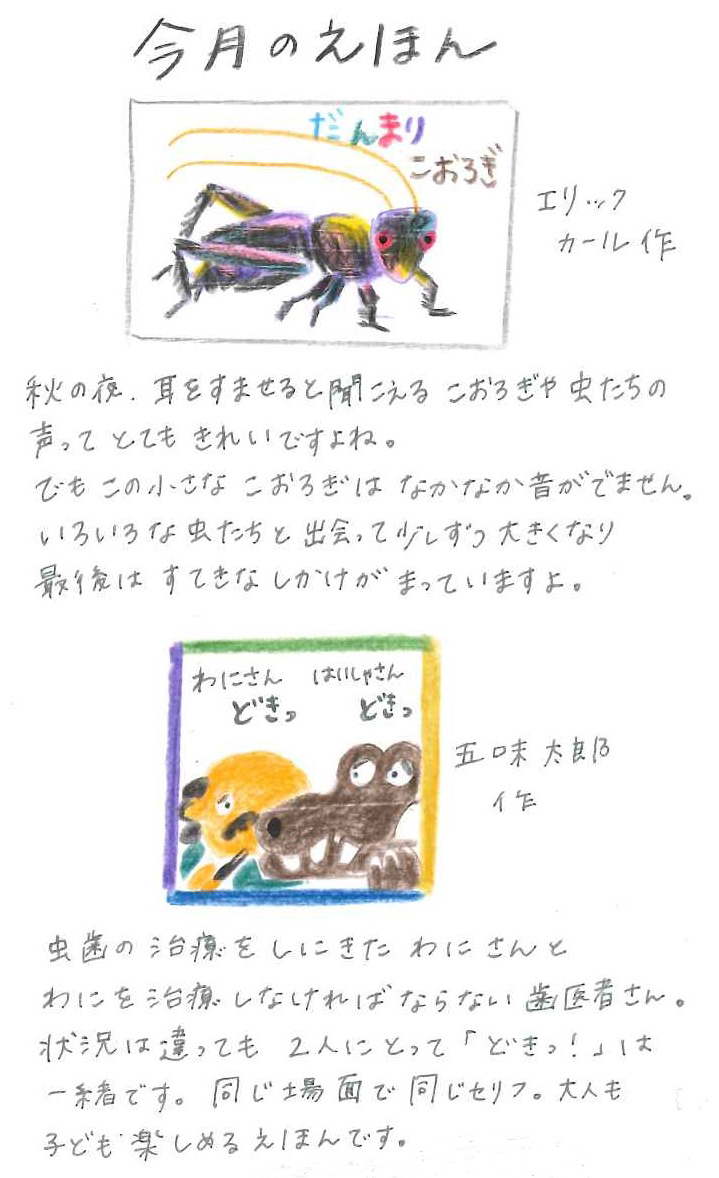 今月のえほん
だんまり
こおろぎ
エリック
カール作
秋の夜、耳をすませると聞こえる こおろぎや虫たちの
声って とても きれいですよね。
でも この小さな こおろぎは なかなか音がでません。
いろいろな虫たちと 出会って少しずつ 大きくなり
最後は すてきな しかけが まっていますよ。
わにさん はいしゃさん
どきっ どきっ
五味 太郎
作
虫歯の 治療を しにきた わに さんと
わにを 治療 しなければ ならない 歯医者さん。
状況は違っても 2人にとって「どきっ!」は
一緒です。同じ場面で 同じセリフ。大人も
子ども 楽しめる えほんです。